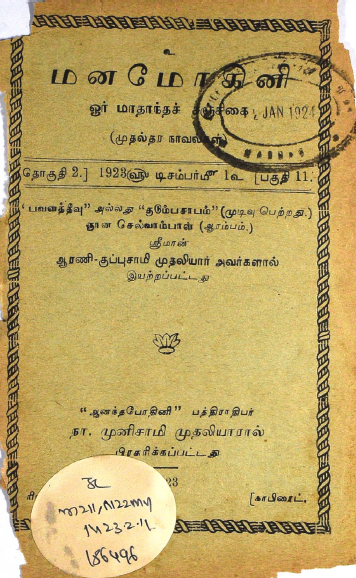 உ
மனமோகினி
ஓர் மாதாந்தச் சஞ்சிகை
JAN 1924
(முதல்தர நாவல்கள்)
MADRAS
தொகுதி 2.] 1923௵ டிசம்பர்௴ 1௳ [பகுதி 11.
"பவளத்தீவு" அல்லது "குடும்பசாபம்" (முடிவு பெற்றது.)
ஞான செல்வாம்பாள் (ஆரம்பம்.)
ஸ்ரீமான்
ஆரணி-குப்புசாமி முதலியார் அவர்களால்
இயற்றப்பட்டது
"ஆனந்தபோதினி" பத்திராதிபர்
நா. முனிசாமி முதலியாரால்
பிரசுரிக்கப்பட்டது
23
ரி [காபிரைட்.
186496